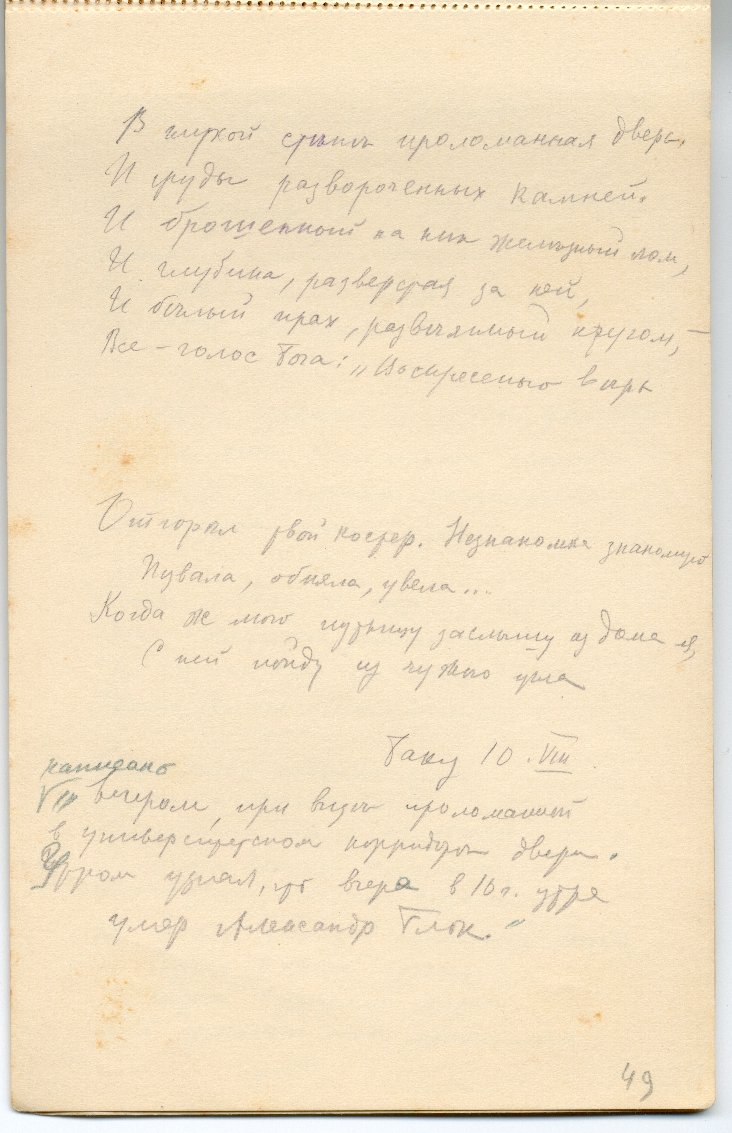 В глухой стѣнѣ проломанная дверь.
И груды развороченных камней.
И брошенный на них желѣзный лом,
И глубина, разверстая за ней,
И бѣлый прах, развѣянный кругом, –
Все – голос Бога: „Воскресенью вѣрь
Отгорѣл твой костер. Незнакомка знакомую
Позвала, обняла, увела...
Когда ж мою музыку заслышу из дома я,
С ней пойду из чужого угла
Баку 10.VIII.
написано
VIII вечером, при видѣ проломанной
в университетском корридорѣ двери.
Утром узнал, что вчера в 10 ч. утра
умер Александр Блок.
49